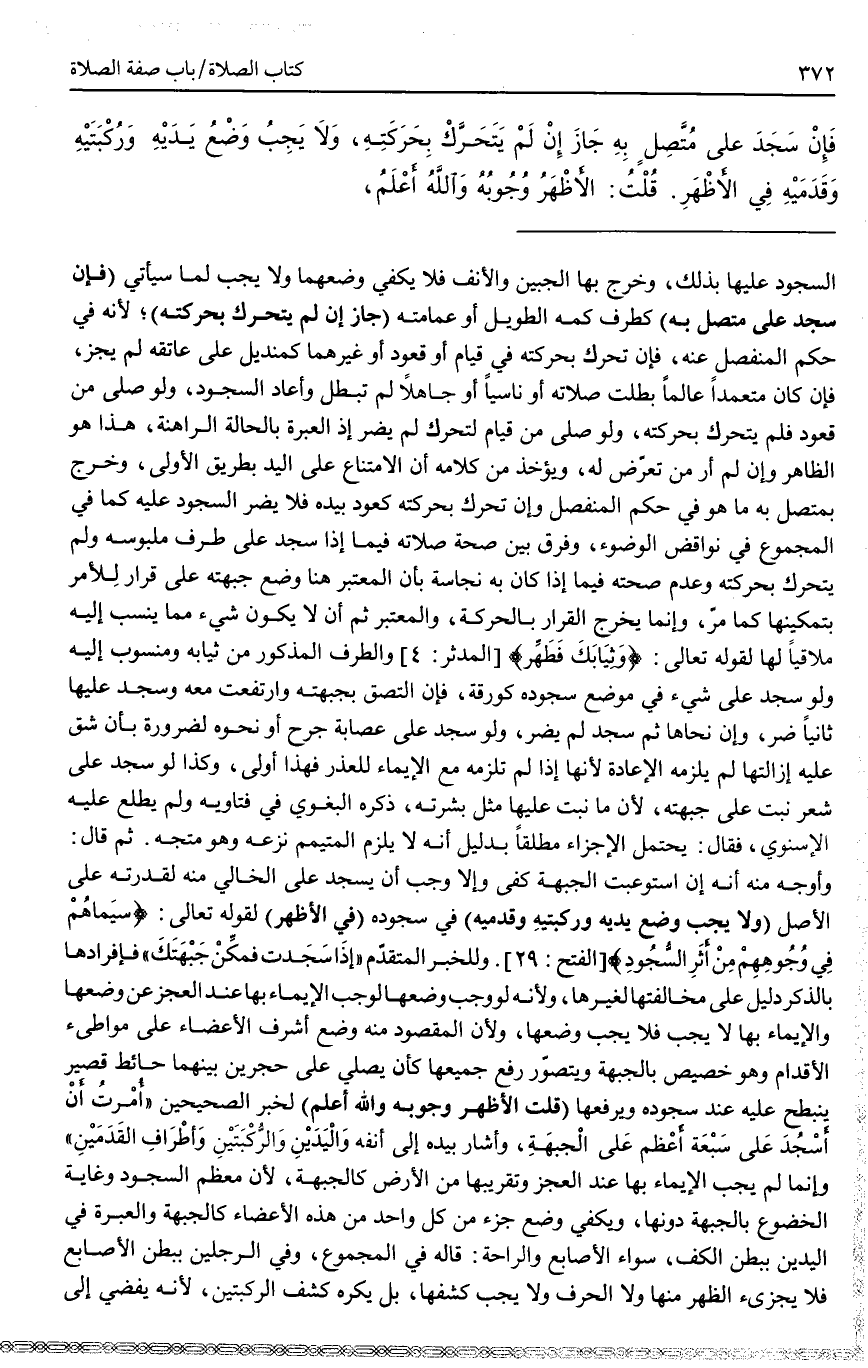 ٣٧٢
كتاب الصلاة/ باب صفة الصلاة
فَإِنْ سَجَدَ على مُتَّصِلٍ بِهِ جَازَ إِنْ لَمْ يَتَحَرَّكْ بِحَرَكَتِهِ، وَلَا يَجِبُ وَضْعُ يَدَيْهِ وَرُكْبَتَيْهِ
وَقَدَمَيْهِ فِي الأَظْهَرِ. قُلْتُ: الأَظْهَرُ وُجُوبُهُ وَٱللَّهُ أَعْلَمُ،
السجود عليها بذلك، وخرج بها الجبين والأنف فلا يكفي وضعهما ولا يجب لما سيأتي (فإن
سجد على متصل به) كطرف كمه الطويل أو عمامته (جاز إن لم يتحرك بحركته)؛ لأنه في
حكم المنفصل عنه، فإن تحرك بحركته في قيام أو قعود أو غيرهما كمنديل على عاتقه لم يجز،
فإن كان متعمداً عالماً بطلت صلاته أو ناسياً أو جاهلاً لم تبطل وأعاد السجود، ولو صلى من
قعود فلم يتحرك بحركته، ولو صلى من قيام لتحرك لم يضر إذ العبرة بالحالة الراهنة، هذا هو
الظاهر وإن لم أر من تعرّض له، ويؤخذ من كلامه أن الامتناع على اليد بطريق الأولى، وخرج
بمتصل به ما هو في حكم المنفصل وإن تحرك بحركته كعود بيده فلا يضر السجود عليه كما في
المجموع في نواقض الوضوء، وفرق بين صحة صلاته فيما إذا سجد على طرف ملبوسه ولم
يتحرك بحركته وعدم صحته فيما إذا كان به نجاسة بأن المعتبر هنا وضع جبهته على قرار للأمر
بتمكينها كما مرّ، وإنما يخرج القرار بالحركة، والمعتبر ثم أن لا يكون شيء مما ينسب إليه
ملاقياً لها لقوله تعالى: ﴿وَثِيَابَكَ فَطَهِّر﴾ [المدثر: ٤] والطرف المذكور من ثيابه ومنسوب إليه
ولو سجد على شيء في موضع سجوده كورقة، فإن التصق بجبهته وارتفعت معه وسجد عليها
ثانياً ضر، وإن نحاها ثم سجد لم يضر، ولو سجد على عصابة جرح أو نحوه لضرورة بأن شق
عليه إزالتها لم يلزمه الإعادة لأنها إذا لم تلزمه مع الإيماء للعذر فهذا أولى، وكذا لو سجد على
شعر نبت على جبهته، لأن ما نبت عليها مثل بشرته، ذكره البغوي في فتاويه ولم يطلع عليه
الإسنوي، فقال: يحتمل الإجزاء مطلقاً بدليل أنه لا يلزم المتيمم نزعه وهو متجه. ثم قال:
وأوجه منه أنه إن استوعبت الجبهة كفى وإلا وجب أن يسجد على الخالي منه لقدرته على
الأصل (ولا يجب وضع يديه وركبتيه وقدميه) في سجوده (في الأظهر) لقوله تعالى: ﴿سيَماهُمْ
فِي وُجُوهِهِمْ مِنْ أَثَرِ السُّجُودِ﴾[الفتح: ٢٩]. وللخبر المتقدّم «إِذَا سَجَدت فمكِّنْ جَبْهَتَكَ» فإفرادها
بالذكر دليل على مخالفتها لغيرها، ولأنه لو وجب وضعها لوجب الإيماء بها عند العجز عن وضعها
والإيماء بها لا يجب فلا يجب وضعها، ولأن المقصود منه وضع أشرف الأعضاء على مواطىء
الأقدام وهو خصيص بالجبهة ويتصوّر رفع جميعها كأن يصلي على حجرين بينهما حائط قصير
ينبطح عليه عند سجوده ويرفعها (قلت الأظهر وجوبه والله أعلم) لخبر الصحيحين «أُمْرتُ أَنْ
أَسْجُدَ عَلى سَبْعَة أَعْظم عَلى الْجبهَةِ، وأشار بيده إلى أنفه وَالْيَدَيْنِ وَالرُّكْبَتَيْنِ وَأَطْرَافِ القَدَمَيْنِ»
وإنما لم يجب الإيماء بها عند العجز وتقريبها من الأرض كالجبهة، لأن معظم السجود وغاية
الخضوع بالجبهة دونها، ويكفي وضع جزء من كل واحد من هذه الأعضاء كالجبهة والعبرة في
اليدين ببطن الكف، سواء الأصابع والراحة: قاله في المجموع، وفي الرجلين ببطن الأصابع
فلا يجزىء الظهر منها ولا الحرف ولا يجب كشفها، بل يكره كشف الركبتين، لأنه يفضي إلى